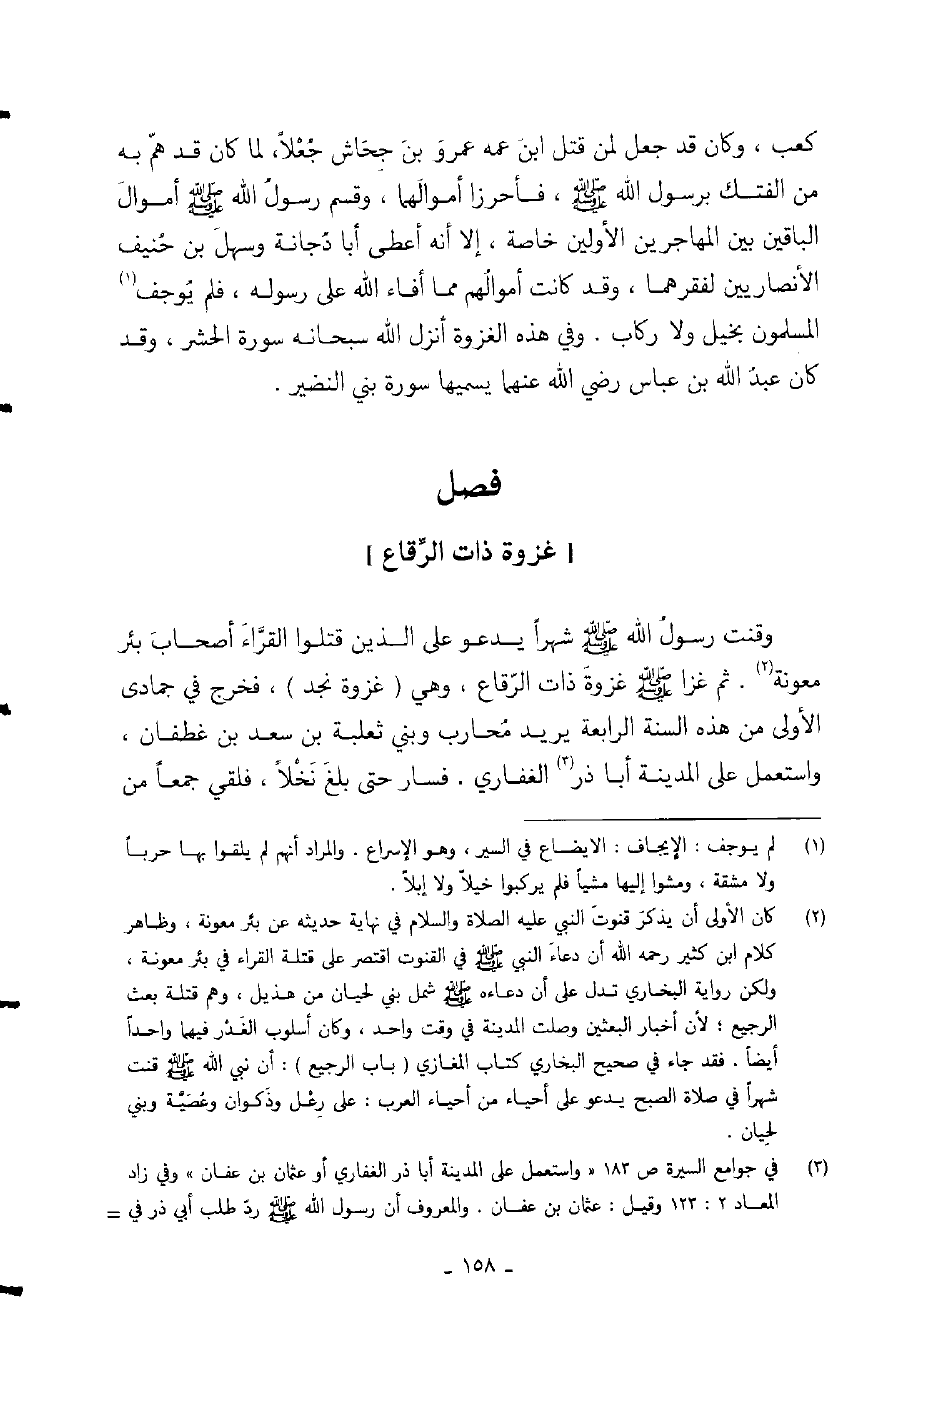 كعب ، وكان قد جعل لمن قتل ابنَ عمه عمروَ بنَ جِحَاش جُعْلاً، لما كان قد همّ به
من الفتك برسول الله ﷺ ، فأحرزا أموالَهما ، وقسم رسولُ الله ﷺ أموالَ
الباقين بين المهاجرين الأولين خاصة ، إلا أنه أعطى أبا دُجانة وسهلَ بن حُنيف
الأنصاريين لفقرهما ، وقد كانت أموالُهم مما أفاء الله على رسوله ، فلم يُوجف(١)
المسلمون بخيل ولا ركاب . وفي هذه الغزوة أنزل الله سبحانه سورة الحشر ، وقد
كان عبدُ الله بن عباس رضي الله عنهما يسميها سورة بني النضير .
فصل
[ غزوة ذات الرِّقاع ]
وقنت رسولُ الله ﷺ شهراً يدعو على الذين قتلوا القرَّاءَ أصحابَ بئر
معونة(٢) . ثم غزا ﷺ غزوةَ ذات الرِّقاع ، وهي ( غزوة نجد ) ، فخرج في جمادى
الأولى من هذه السنة الرابعة يريد مُحارب وبني ثعلبة بن سعد بن غطفان ،
واستعمل على المدينة أبا ذر(٣) الغفاري . فسار حتى بلغَ نَخْلاً ، فلقي جمعاً من
(١) لم يوجف : الإيجاف : الايضاع في السير ، وهو الإسراع . والمراد أنهم لم يلقوا بها حرباً
ولا مشقة ، ومشوا إليها مشياً فلم يركبوا خيلاً ولا إبلاً .
(٢) كان الأولى أن يذكرَ قنوتَ النبي عليه الصلاة والسلام في نهاية حديثه عن بئر معونة ، وظاهر
كلام ابن كثير رحمه الله أن دعاءَ النبي ﷺ في القنوت اقتصر على قتلة القراء في بئر معونة ،
ولكن رواية البخاري تدل على أن دعاءه ﷺ شمل بني لحيان من هذيل ، وهم قتلة بعث
الرجيع ؛ لأن أخبار البعثين وصلت المدينة في وقت واحد ، وكان أسلوب الغَدْر فيها واحداً
أيضاً . فقد جاء في صحيح البخاري كتاب المغازي ( باب الرجيع ) : أن نبي الله ﷺ قنت
شهراً في صلاة الصبح يدعو على أحياء من أحياء العرب : على رِعْل وذَكوان وعُصَيَّة وبني
لحيان .
(٣) في جوامع السيرة ص ١٨٣ « واستعمل على المدينة أبا ذر الغفاري أو عثمان بن عفان » وفي زاد
المعاد ٢ : ١٢٣ وقيل : عثمان بن عفان . والمعروف أن رسول الله ﷺ ردّ طلب أبي ذر في =
- ١٥٨ -